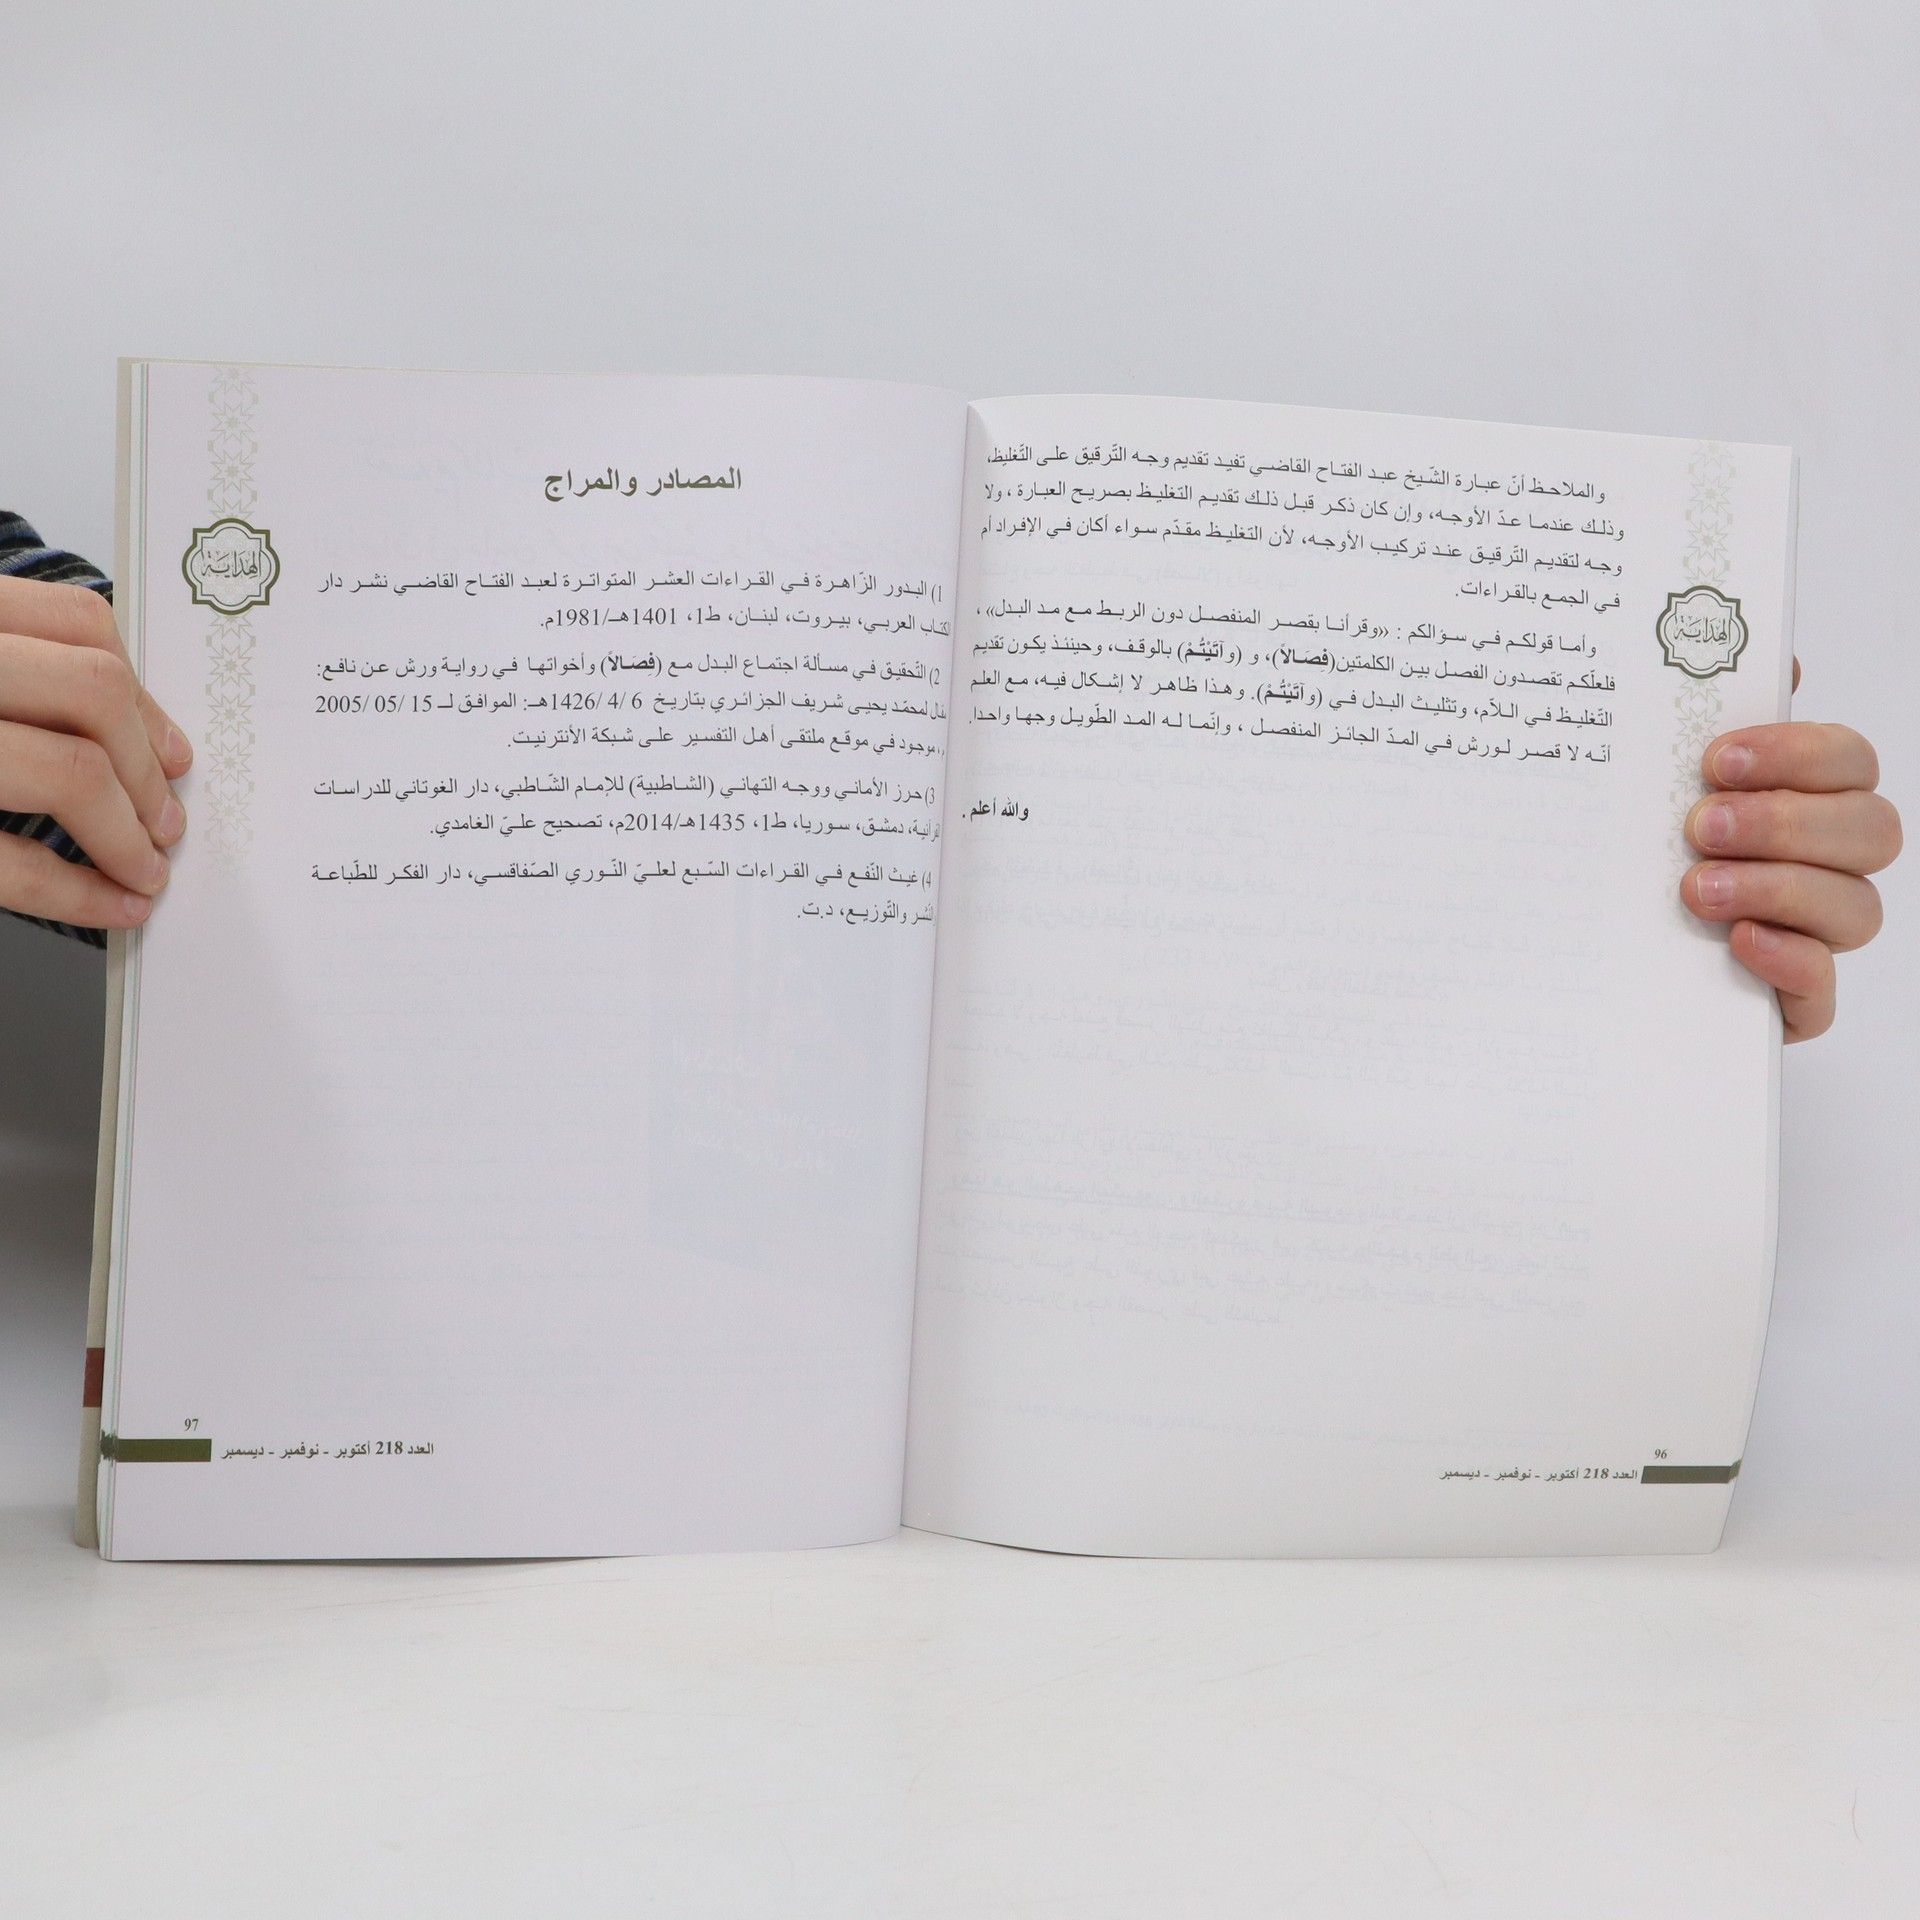 والملاحظ أنّ عبارة الشّيخ عبد الفتاح القاضي تفيد تقديم وجه التّرقيق على التّغليظ،
وذلك عندما عدّ الأوجه، وإن كان ذكر قبل ذلك تقديم التغليظ بصريح العبارة ، ولا
وجه لتقديم التّرقيق عند تركيب الأوجه، لأن التغليظ مقدّم سواء أكان في الإفراد أم
في الجمع بالقراءات.
وأما قولكم في سؤالكم : «وقرأنا بقصر المنفصل دون الربط مع مد البدل» ،
فلعلّكم تقصدون الفصل بين الكلمتين(فِصَالاً)، و (وآتَيْتُمْ) بالوقف، وحينئذ يكون تقديم
التّغليظ في اللاّم، وتثليث البدل في (وآتَيْتُمْ). وهذا ظاهر لا إشكال فيه، مع العلم
أنّه لا قصر لورش في المدّ الجائز المنفصل ، وإنّما له المد الطّويل وجها واحدا.
والله أعلم .
الهداية
96
العدد 218 أكتوبر - نوفمبر - ديسمبر
المصادر والمراج
1) البدور الزّاهرة في القراءات العشر المتواترة لعبد الفتاح القاضي نشر دار
العربي، بيروت، لبنان، ط1، 1401هـ/1981م.
2) التّحقيق في مسألة اجتماع البدل مع (فِصَالاً) وأخواتها في رواية ورش عن نافع:
لمحمّد يحيى شريف الجزائري بتاريخ 6 /4 /1426هـ: الموافق لـ 15 /05 /2005
موجود في موقع ملتقى أهل التفسير على شبكة الأنترنيت.
3) حرز الأماني ووجه التهاني (الشاطبية) للإمام الشّاطبي، دار الغوثاني للدراسات
دمشق، سوريا، ط1، 1435هـ/2014م، تصحيح عليّ الغامدي.
4) غيث النّفع في القراءات السّبع لعليّ النّوري الصّفاقسي، دار الفكر للطّباعة
والتّوزيع، د.ت.
الهداية
97
العدد 218 أكتوبر - نوفمبر - ديسمبر